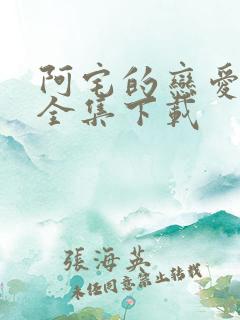 阿宅的戀愛
全集下載
張海英
未經同意禁止轉載